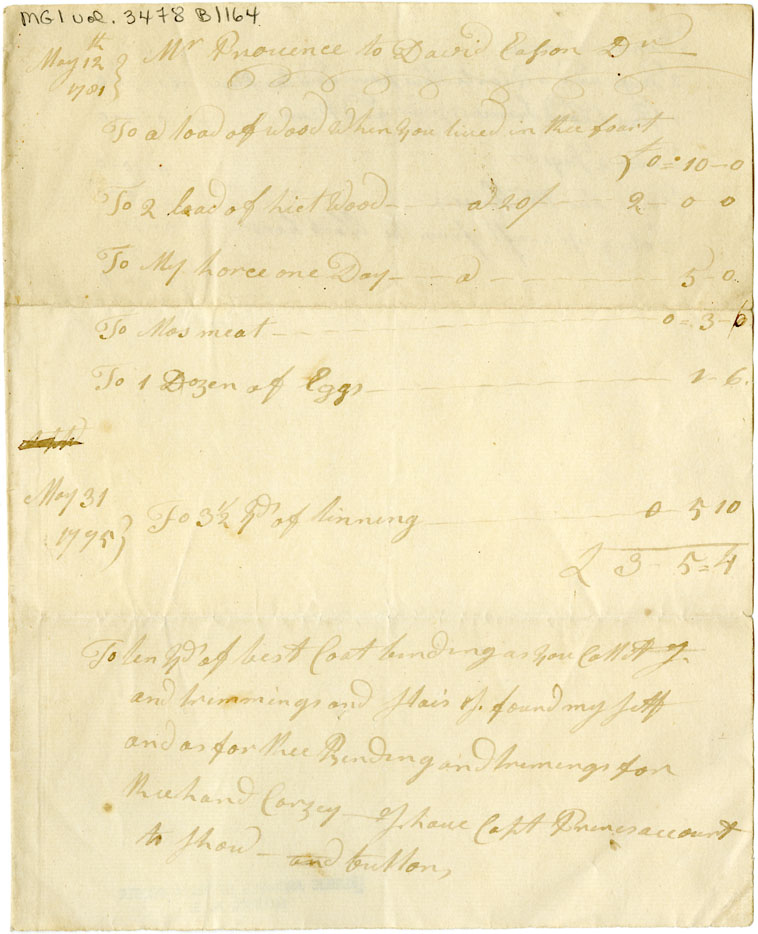 MG1 vol. 3478 B1164
May 12th 1781 } Mr Provence to David Easson Dr
To a load of wood when you lived in thee foart
£ 0=10-0
To 2 load of hict wood - a 20/ 2 - 0 0
To My horce one Day - a 5-0
To Mos meat 0=3-6
To 1 Dozen of Eggs 1-6.
May 31 1795 } To 3½ Yds of linning 0 5 10
£ 3 - 5=4
To ten Yds of best Coat binding as you Call it
and trimmings and I found my self
and as for thee Binding and trimings for
thee hand I have Capt Princes account
to show - and button,